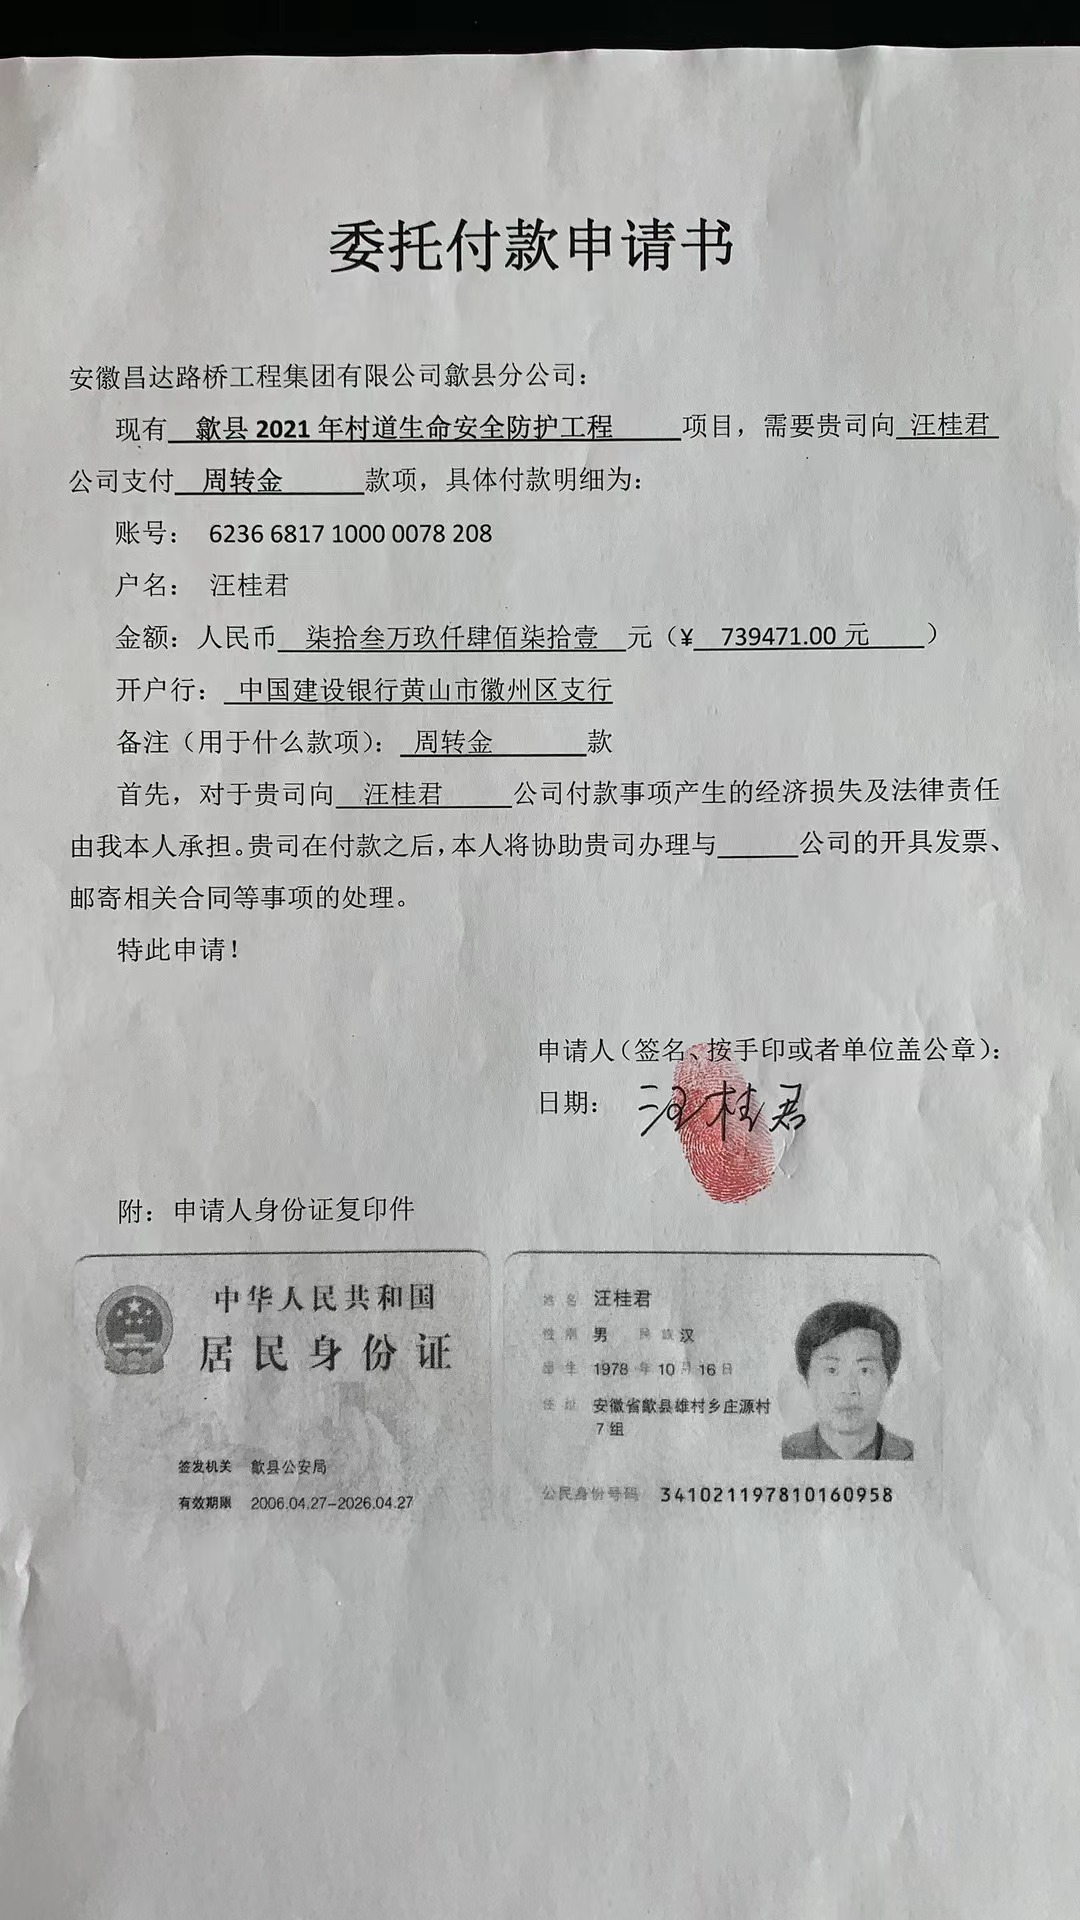 委托付款申请书
安徽昌达路桥工程集团有限公司歙县分公司：
现有 歙县 2021 年村道生命安全防护工程 项目，需要贵司向 汪桂君
公司支付 周转金 款项，具体付款明细为：
账号： 6236 6817 1000 0078 208
户名： 汪桂君
金额：人民币 柒拾叁万玖仟肆佰柒拾壹 元（¥ 739471.00 元 ）
开户行： 中国建设银行黄山市徽州区支行
备注（用于什么款项）： 周转金 款
首先，对于贵司向 汪桂君 公司付款事项产生的经济损失及法律责任
由我本人承担。贵司在付款之后，本人将协助贵司办理与______公司的开具发票、
邮寄相关合同等事项的处理。
特此申请！
申请人（签名、按手印或者单位盖公章）：
日期： 汪桂君
附：申请人身份证复印件
中华人民共和国
居民身份证
签发机关 歙县公安局
有效期限 2006.04.27-2026.04.27
姓名 汪桂君
性别 男 民族 汉
出生 1978 年 10 月 16 日
住址 安徽省歙县雄村乡庄源村
7 组
公民身份号码 341021197810160958